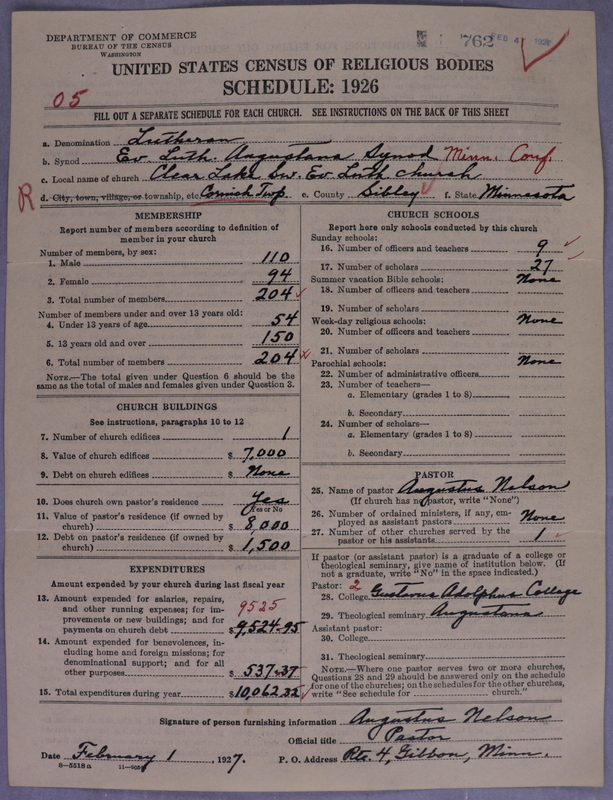 DEPARTMENT OF COMMERCE
BUREAU OF THE CENSUS
WASHINGTON
762 FEB 4 1927
UNITED STATES CENSUS OF RELIGIOUS BODIES
SCHEDULE: 1926
05
FILL OUT A SEPARATE SCHEDULE FOR EACH CHURCH. SEE INSTRUCTIONS ON THE BACK OF THIS SHEET
a. Denomination Lutheran
b. Synod Ev. Luth. Augustana Synod Minn. Conf.
c. Local name of church Clear Lake Sw. Ev. Luth church
R d. City, town, village, or township, etc. Cornish Twp. e. County Sibley f. State Minnesota
MEMBERSHIP
Report number of members according to definition of
member in your church
Number of members, by sex:
1. Male 110
2. Female 94
3. Total number of members 204
Number of members under and over 13 years old:
4. Under 13 years of age 54
5. 13 years old and over 150
6. Total number of members 204
NOTE.—The total given under Question 6 should be the
same as the total of males and females given under Question 3.
CHURCH BUILDINGS
See instructions, paragraphs 10 to 12
7. Number of church edifices 1
8. Value of church edifices $ 7,000
9. Debt on church edifices $ None
10. Does church own pastor's residence Yes
Yes or No
11. Value of pastor's residence (if owned by
church) $ 8,000
12. Debt on pastor's residence (if owned by
church) $ 1,500
EXPENDITURES
Amount expended by your church during last fiscal year
13. Amount expended for salaries, repairs,
and other running expenses; for im- 9525
provements or new buildings; and for
payments on church debt $ 9,524.95
14. Amount expended for benevolences, in-
cluding home and foreign missions; for
denominational support; and for all
other purposes $ 537.37
15. Total expenditures during year $ 10,062.32
CHURCH SCHOOLS
Report here only schools conducted by this church
Sunday schools:
16. Number of officers and teachers 9
17. Number of scholars 27
Summer vacation Bible schools: None
18. Number of officers and teachers
19. Number of scholars
Week-day religious schools: None
20. Number of officers and teachers
21. Number of scholars
Parochial schools: None
22. Number of administrative officers
23. Number of teachers—
a. Elementary (grades 1 to 8)
b. Secondary
24. Number of scholars—
a. Elementary (grades 1 to 8)
b. Secondary
PASTOR
25. Name of pastor Augustus Nelson
(If church has no pastor, write "None")
26. Number of ordained ministers, if any, em-
ployed as assistant pastors None
27. Number of other churches served by the
pastor or his assistants 1
If pastor (or assistant pastor) is a graduate of a college or
theological seminary, give name of institution below. (If
not a graduate, write "No" in the space indicated.)
Pastor: 2
28. College Gustavus Adolphus College
29. Theological seminary Augustana
Assistant pastor:
30. College
31. Theological seminary
NOTE.—Where one pastor serves two or more churches,
Questions 28 and 29 should be answered only on the schedule
for one of the churches; on the schedules for the other churches,
write "See schedule for church."
Signature of person furnishing information Augustus Nelson
Official title Pastor
Date February 1, 1927. P. O. Address Rte. 4, Gibbon, Minn.
8—5518a